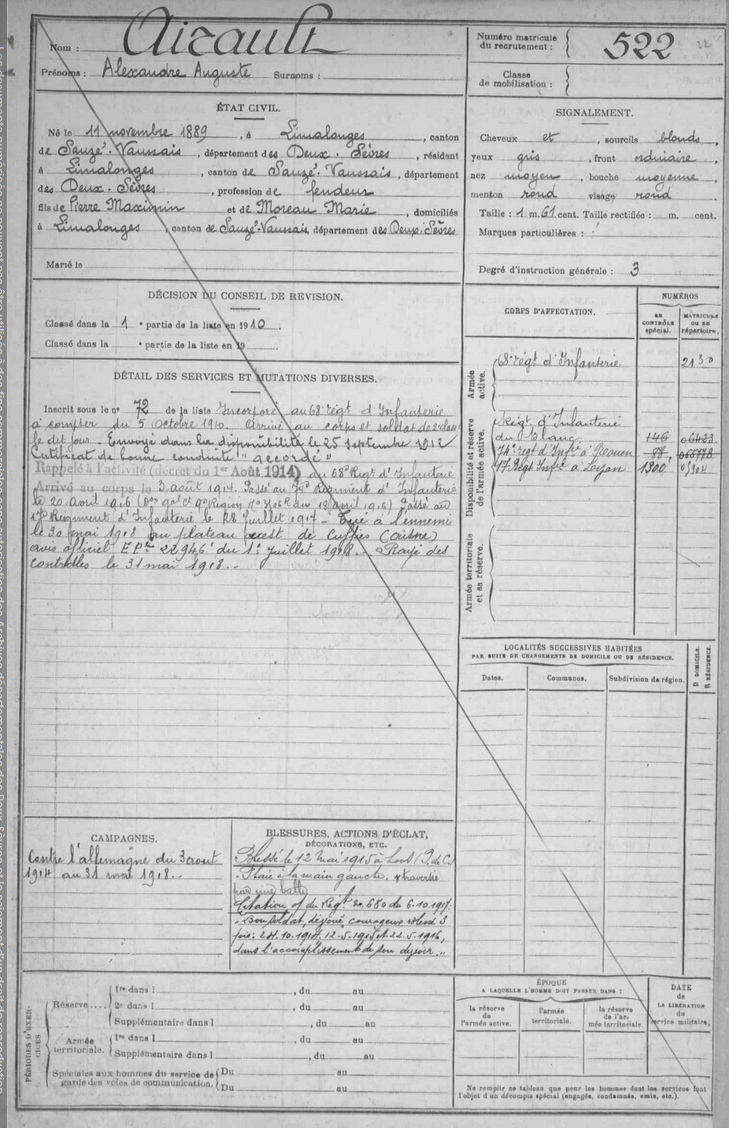 Nom : Airault
Prénoms : Alexandre Auguste Surnoms :
Numéro matricule du recrutement : 522
Classe de mobilisation :
ÉTAT CIVIL.
Né le 11 novembre 1889, à Limalonges, canton
de Sauzé-Vaussais, département des Deux-Sèvres, résidant
à Limalonges, canton de Sauzé-Vaussais, département
des Deux-Sèvres, profession de fendeur
fils de Pierre Maximin et de Moreau Marie, domiciliés
à Limalonges, canton de Sauzé-Vaussais, département des Deux-Sèvres
Marié le
SIGNALEMENT.
Cheveux et, sourcils blonds,
yeux gris, front ordinaire
nez moyen, bouche moyenne
menton rond visage rond
Taille : 1 m. 61 cent. Taille rectifiée : m. cent.
Marques particulières :
Degré d'instruction générale : 3
DÉCISION DU CONSEIL DE REVISION.
Classé dans la 1e partie de la liste en 1910
Classé dans la e partie de la liste en 19
DÉTAIL DES SERVICES ET MUTATIONS DIVERSES.
Inscrit sous le n° 72 de la liste Incorporé au 68e régt d'Infanterie
à compter du 5 octobre 1910. Arrivé au corps et soldat de 2e classe
le dit jour. Envoyé dans la disponibilité le 25 septembre 1912
Certificat de bonne conduite "accordé"
Rappelé à l'activité (décret du 1er Août 1914) au 68e Régt d'Infanterie
Arrivé au corps le 3 août 1914. Passé au 74e Régiment d'Infanterie
le 20 avril 1916 du 18 avril 1916) Passé au
17e Régiment d'Infanterie le 28 Juillet 1917 - Tué à l'ennemi
le 30 mai 1918 au plateau ouest de Cuffies (Aisne)
avis officiel 22946 du 1er Juillet 1918. - Rayé des
contrôles le 31 mai 1918. -
CORPS D'AFFECTATION.
NUMÉROS
AU CONTRÔLE spécial.
MATRICULE OU AU répertoire.
Armée active.
68e régt d'Infanterie 2130
Disponibilité et réserve de l'armée active.
Régt d'Infanterie
du Blanc 146
74e régt d'Inf ie à Rouen
17e Régt Inf ie 1300
Armée territoriale et sa réserve.
LOCALITÉS SUCCESSIVES HABITÉES
PAR SUITE DE CHANGEMENTS DE DOMICILE OU DE RÉSIDENCE.
Dates. Communes. Subdivision de région.
D. DOMICILE. R. RÉSIDENCE.
CAMPAGNES.
Contre l'Allemagne du 3 août
1914 au 31 mai 1918. -
BLESSURES, ACTIONS D'ÉCLAT,
DÉCORATIONS, ETC.
Blessé le 12 mai 1915 à Loos (P. de C.)
Plaie à la main gauche, traversée
par une balle
Citation of du Régt n° 680 du 6.10.1917.
"Bon soldat, dévoué, courageux blessé 3
fois : 24.10.1914, 12.5.1915 et 22.5.1916,
dans l'accomplissement de son devoir."
PÉRIODES D'EXERCICES
Réserve.... 1re dans l , du au
2e dans l , du au
Supplémentaire dans l , du au
Armée territoriale. 1re dans l , du au
Supplémentaire dans l , du au
Spéciales aux hommes du service de garde des voies de communication. Du au
Du au
ÉPOQUE
A LAQUELLE L'HOMME DOIT PASSER DANS :
la réserve de l'armée active.
l'armée territoriale.
la réserve de l'armée territoriale.
DATE de LA LIBÉRATION du service militaire.
Ne remplir ce tableau que pour les hommes dont les services font
l'objet d'un décompte spécial (engagés, condamnés, omis, etc.).